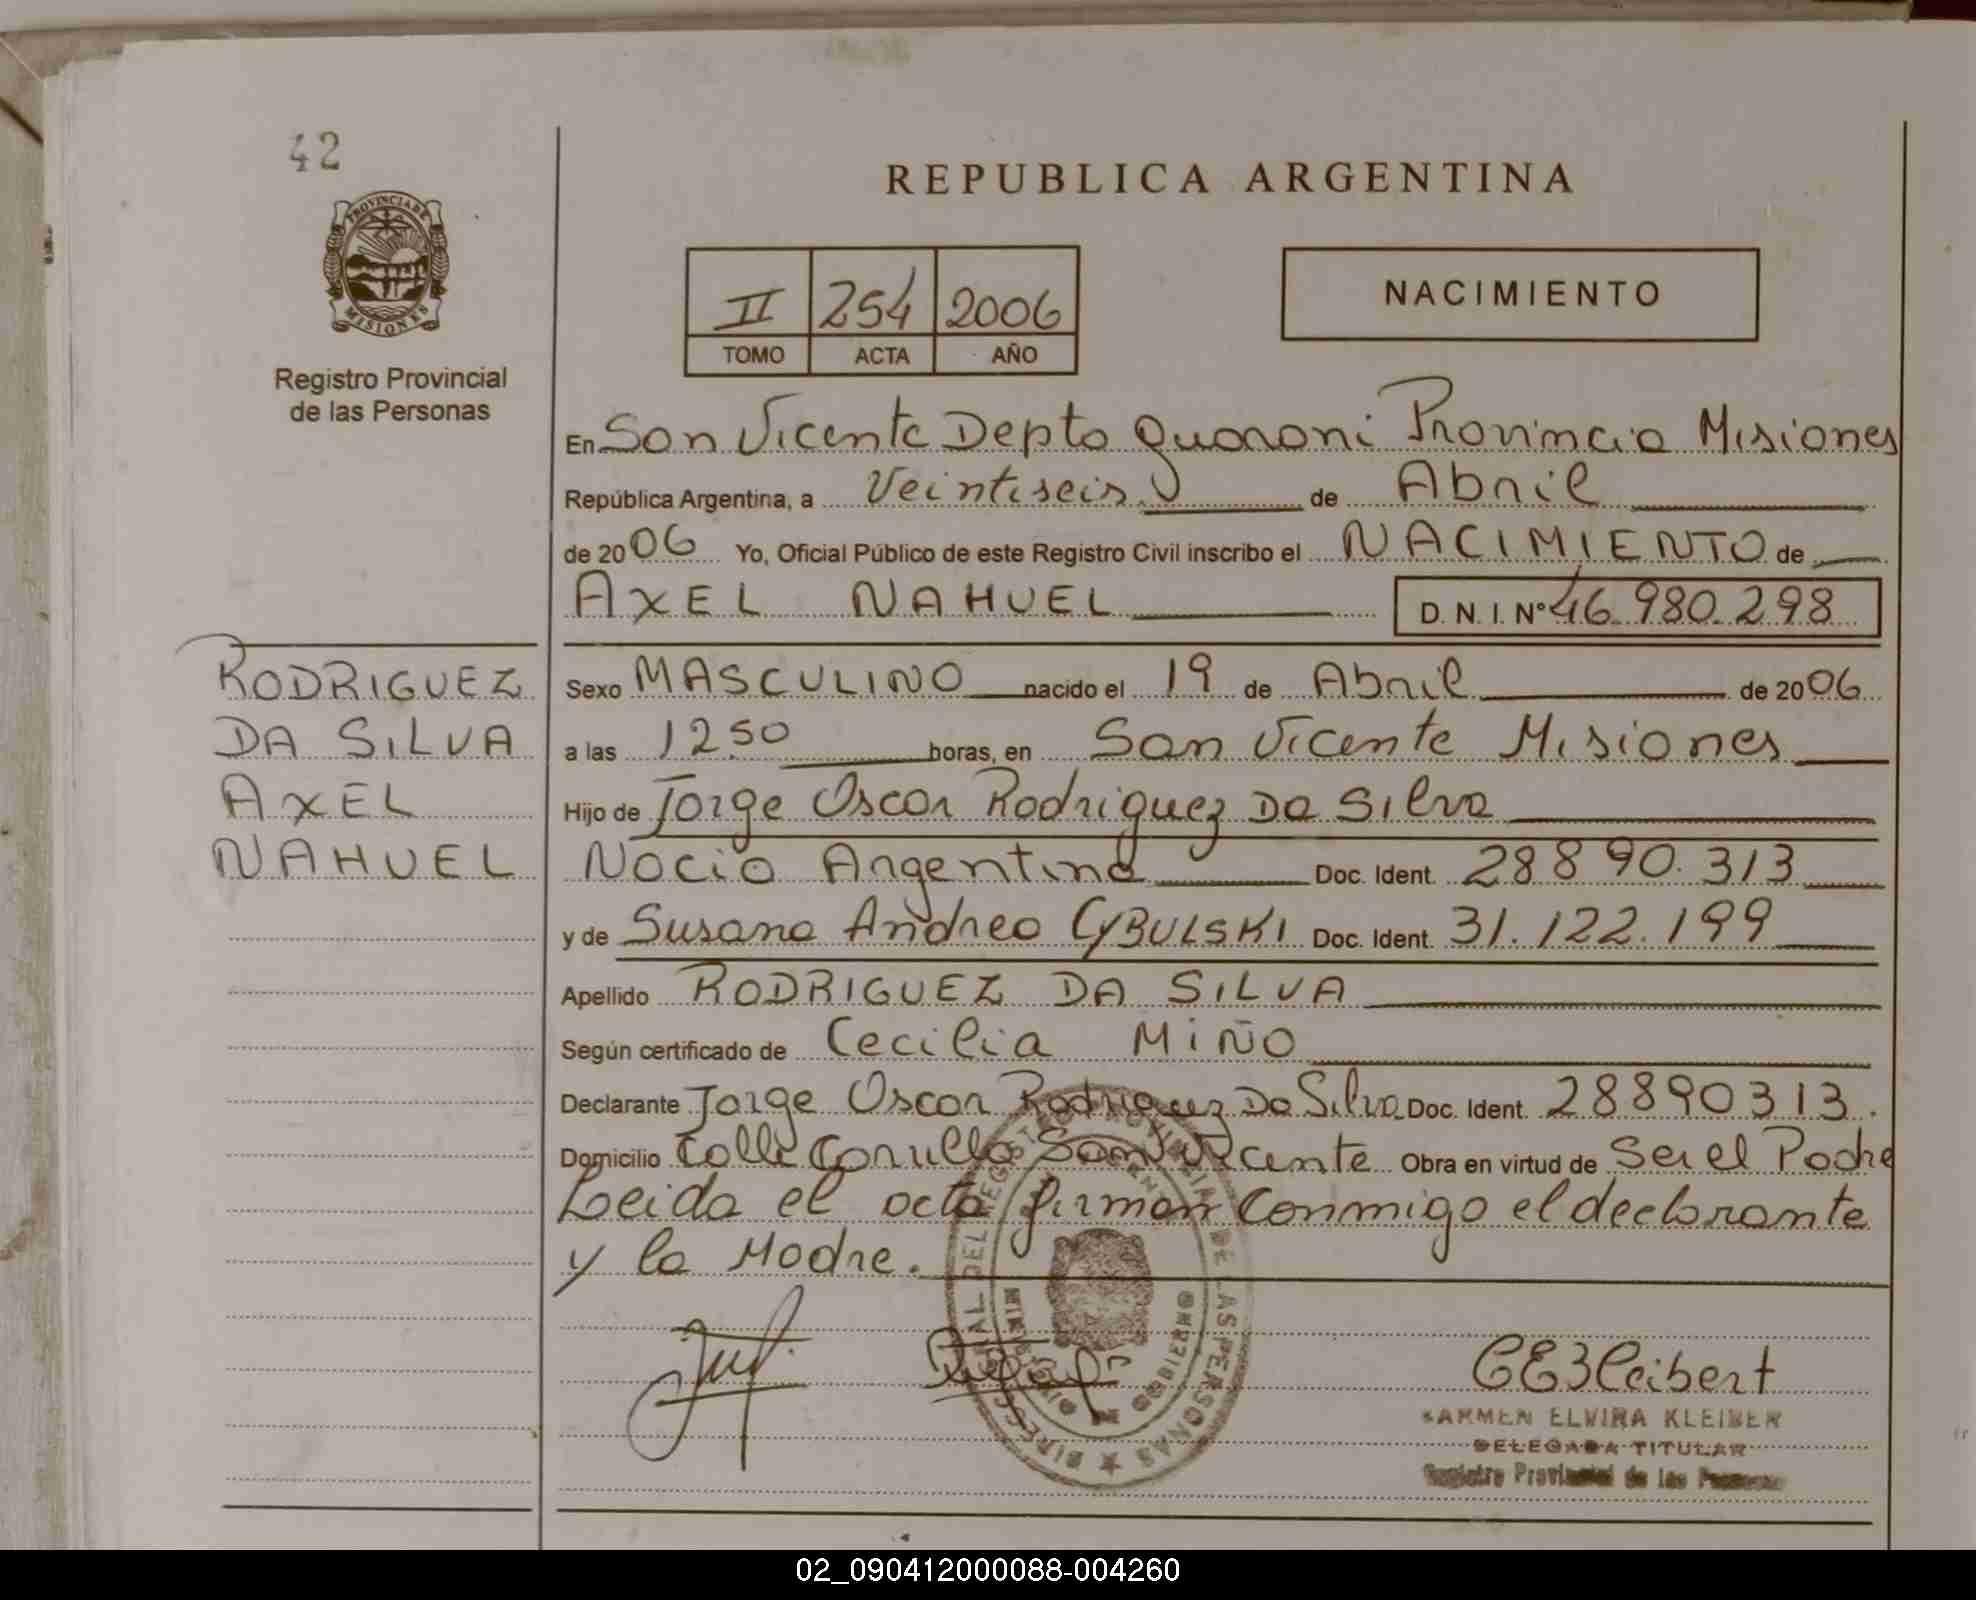 42
PROVINCIA DE
MISIONES
Registro Provincial
de las Personas
REPUBLICA ARGENTINA
II 254 2006
TOMO ACTA AÑO
NACIMIENTO
En San Vicente Depto Guarani Provincia Misiones
República Argentina, a Veintiseis de Abril
de 2006 Yo, Oficial Público de este Registro Civil inscribo el NACIMIENTO de
AXEL NAHUEL D. N. I. Nº 46.980.298
RODRIGUEZ
DA SILVA
AXEL
NAHUEL
Sexo MASCULINO nacido el 19 de Abril de 2006
a las 12.50 horas, en San Vicente Misiones
Hijo de Jorge Oscar Rodriguez Da Silva
Nacio Argentina Doc. Ident. 28890.313
y de Susana Andrea CYBULSKI Doc. Ident. 31.122.199
Apellido RODRIGUEZ DA SILVA
Según certificado de Cecilia MIÑO
Declarante Jorge Oscar Rodriguez Da Silva Doc. Ident. 28890313.
Domicilio Calle San Vicente Obra en virtud de Ser el Padre
Leida el acta firman conmigo el declarante
y la Madre.
CEKleibert
KARMEN ELVIRA KLEIBER
DELEGADA TITULAR
Registro Provincial de las Personas
02_090412000088-004260